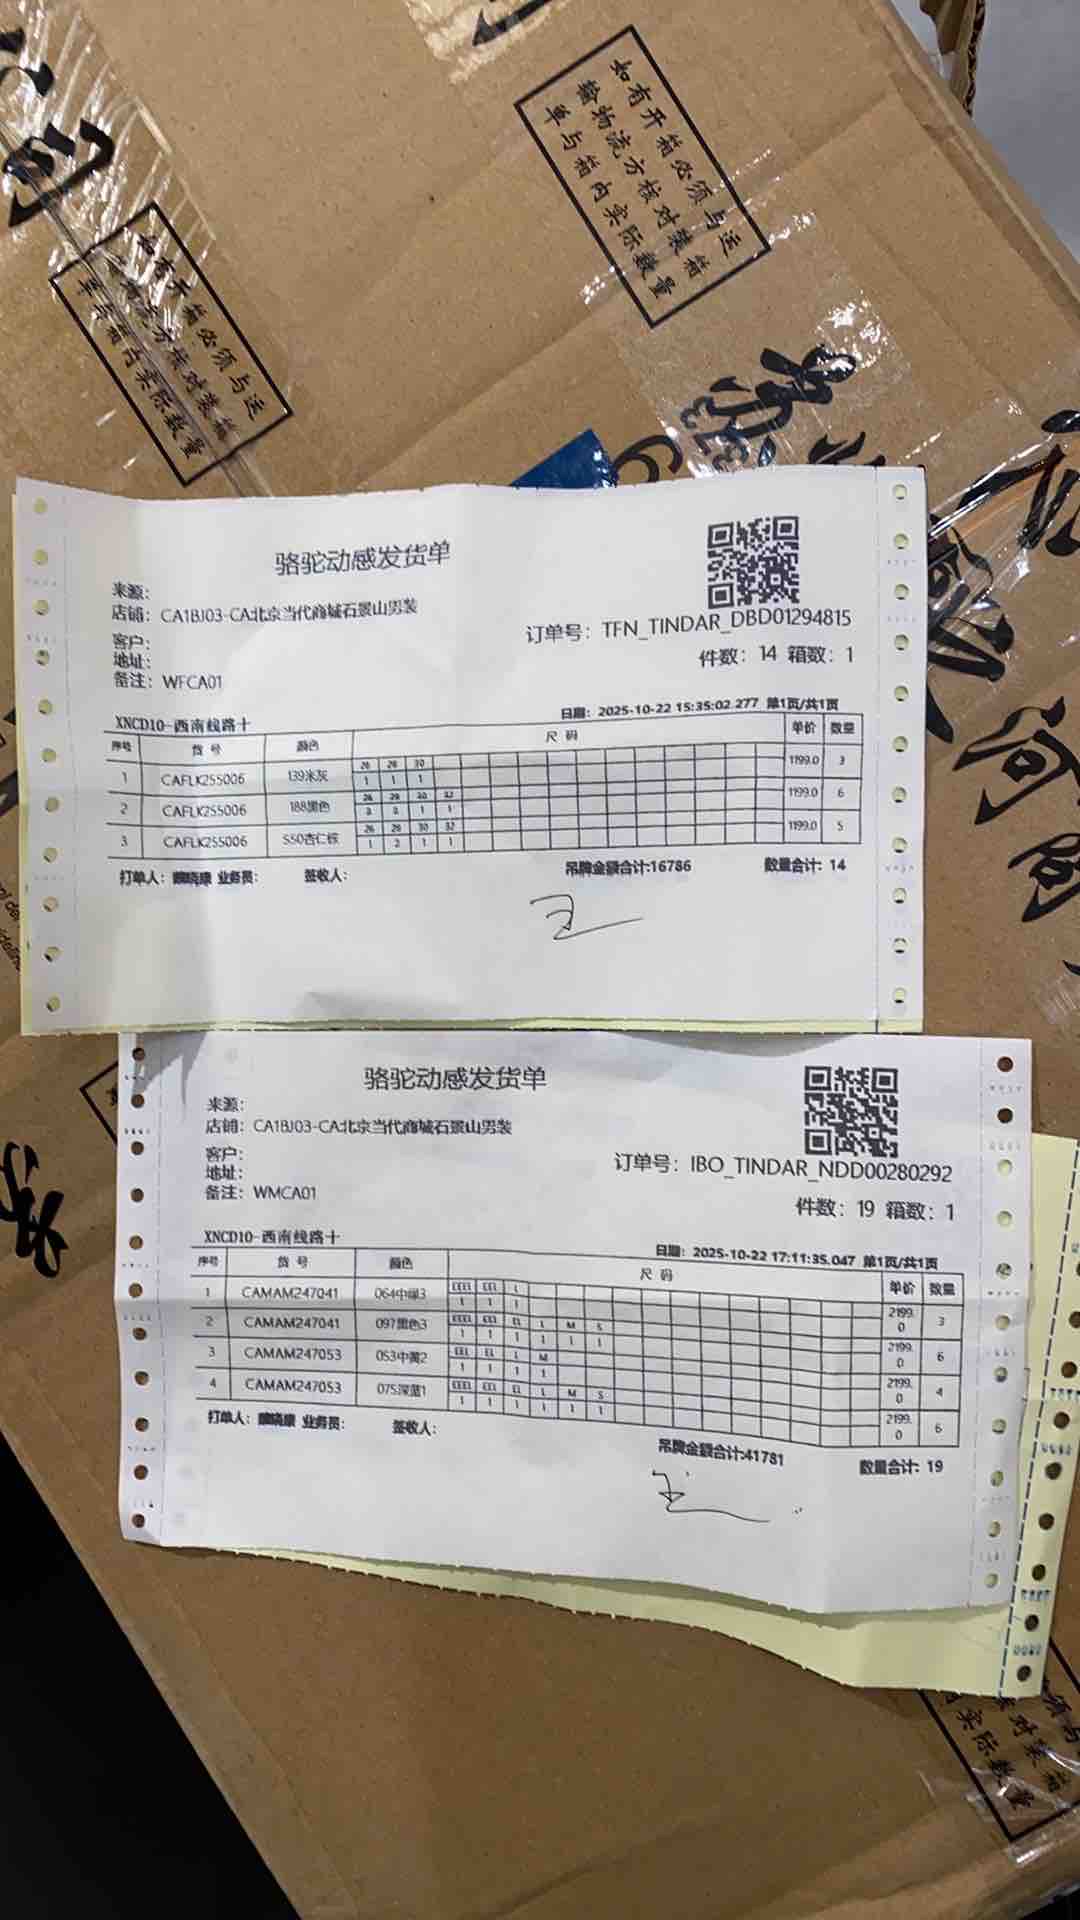 如有开箱必须与运
输物流方核对装箱
单与箱内实际数量
如有开箱必须与运
单与箱内实际数量
骆驼动感发货单
来源:
店铺: CA1BJ03-CA北京当代商城石景山男装
客户:
地址:
备注: WFCA01
订单号: TFN_TINDAR_DBD01294815
件数: 14 箱数: 1
XNCD10-西南线路十
日期: 2025-10-22 15:35:02.277 第1页/共1页
序号 货 号 颜色 尺 码 单价 数量
28 29 30
1 CAFLK255006 139米灰 1 1 1 1199.0 3
28 29 30 32
2 CAFLK255006 188黑色 2 2 1 1 1199.0 6
28 29 30 32
3 CAFLK255006 550杏仁棕 1 2 1 1 1199.0 5
打单人: 业务员: 签收人: 吊牌金额合计:16786 数量合计: 14
骆驼动感发货单
来源:
店铺: CA1BJ03-CA北京当代商城石景山男装
客户:
地址:
备注: WMCA01
订单号: IBO_TINDAR_NDD00280292
件数: 19 箱数: 1
XNCD10-西南线路十
日期: 2025-10-22 17:11:35.047 第1页/共1页
序号 货 号 颜色 尺 码 单价 数量
1 CAMAM247041 064中绿3 1 1 1 2199.0 3
2 CAMAM247041 097黑色3 L M S 1 1 1 1 1 1 2199.0 6
3 CAMAM247053 053中黄2 L M 1 1 1 1 2199.0 4
4 CAMAM247053 075深蓝1 L M S 1 1 1 1 1 1 2199.0 6
打单人: 业务员: 签收人: 吊牌金额合计:41781 数量合计: 19